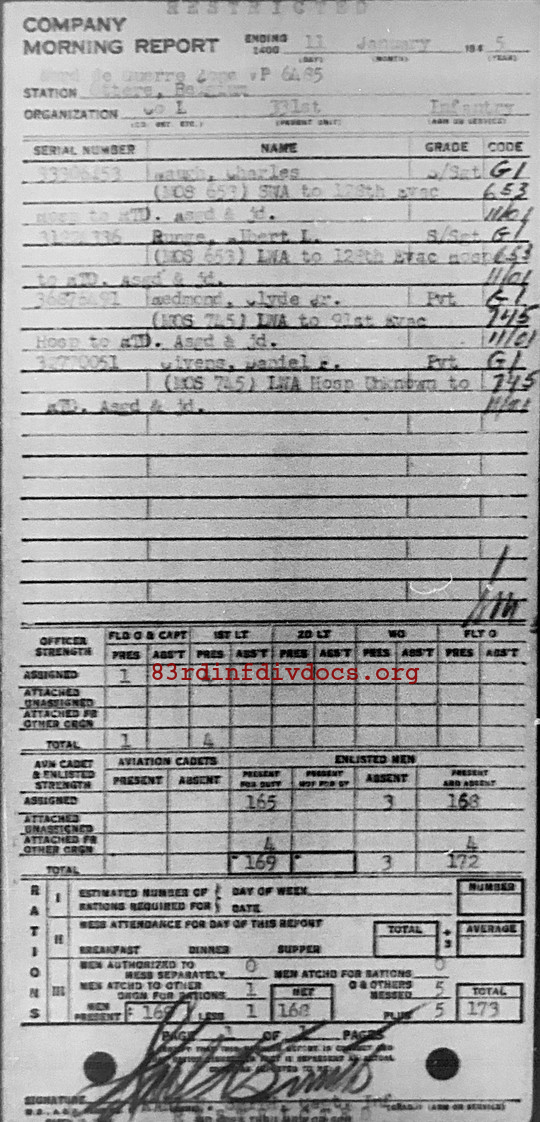 RESTRICTED
COMPANY
MORNING REPORT ENDING 2400 11 January 194 5
(DAY) (MONTH) (YEAR)
de Guerre VP 6485
STATION Belgium
ORGANIZATION Co L 331st Infantry
(PARENT UNIT) (ARM OR SERVICE)
SERIAL NUMBER NAME GRADE CODE
33306453 Charles S/Sgt G1
(MOS 653) SWA to 128th Evac 653
Hosp to ATD. Asgd & jd. 11/01
Runge, Albert L. S/Sgt G1
(MOS 653) LWA to 128th Evac Hosp 653
to ATD. Asgd & jd. 11/01
36876491 Redmond, Clyde Jr. Pvt G1
(MOS 745) LWA to 91st Evac 745
Hosp to ATD. Asgd & jd. 11/01
Givens, Daniel Pvt G1
(MOS 745) LWA Hosp Unknown to 745
ATD. Asgd & jd. 11/01
OFFICER STRENGTH FLD O & CAPT 1ST LT 2D LT WO FLT O
PRES ABS'T PRES ABS'T PRES ABS'T PRES ABS'T PRES ABS'T
ASSIGNED 1
83rdinfdivdocs.org
ATTACHED UNASSIGNED
ATTACHED FR OTHER ORGN
TOTAL 1 4
AVN CADET & ENLISTED STRENGTH AVIATION CADETS ENLISTED MEN
PRESENT ABSENT PRESENT FOR DUTY PRESENT NOT FOR DY ABSENT PRESENT AND ABSENT
ASSIGNED 165 3 168
ATTACHED UNASSIGNED
ATTACHED FR OTHER ORGN 4 4
TOTAL 169 3 172
RATIONS
I ESTIMATED NUMBER OF RATIONS REQUIRED FOR DAY OF WEEK DATE NUMBER
II MESS ATTENDANCE FOR DAY OF THIS REPORT TOTAL ÷ 3 AVERAGE
BREAKFAST DINNER SUPPER
III MEN AUTHORIZED TO MESS SEPARATELY 0 MEN ATCHD FOR RATIONS 0
MEN ATCHD TO OTHER ORGN FOR RATIONS 1 NET O & OTHERS MESSED 5 TOTAL
MEN PRESENT 169 LESS 1 168 PLUS 5 173
PAGE 1 OF 1 PAGES
SIGNATURE